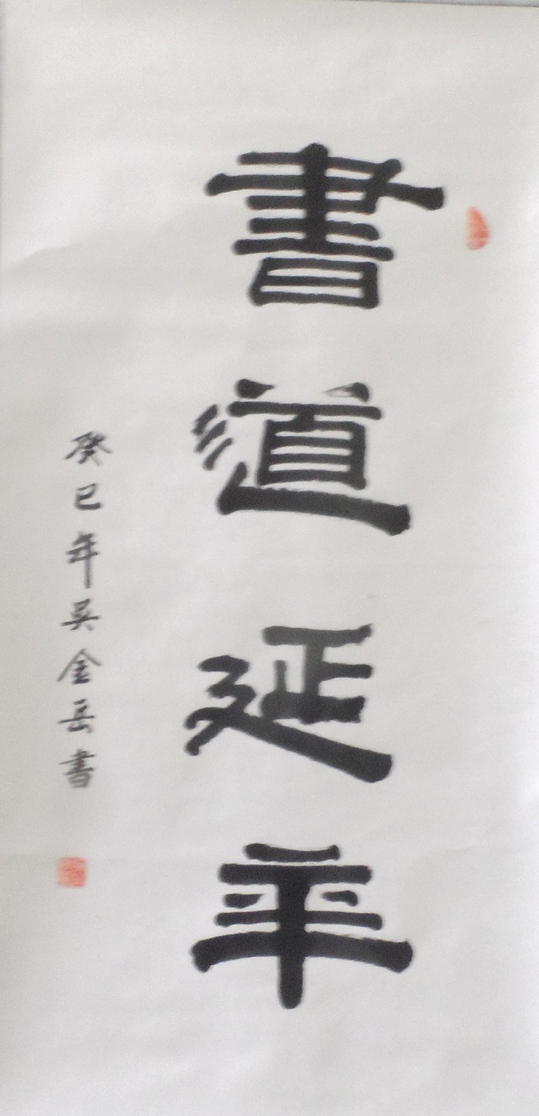 書道延年
癸巳年吴金岳書